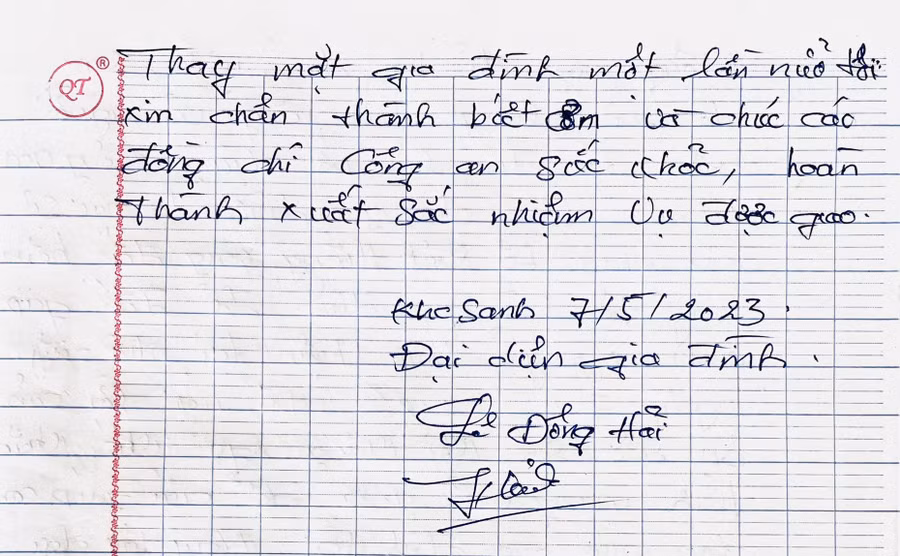 QT ®
Thay mặt gia đình một lần nữa tôi
xin chân thành biết ơn và chúc các
đồng chí Công an sức khỏe, hoàn
thành xuất sắc nhiệm vụ được giao.
Khe Sanh 7/5/2023.
Đại diện gia đình.
Lê Đồng Hải